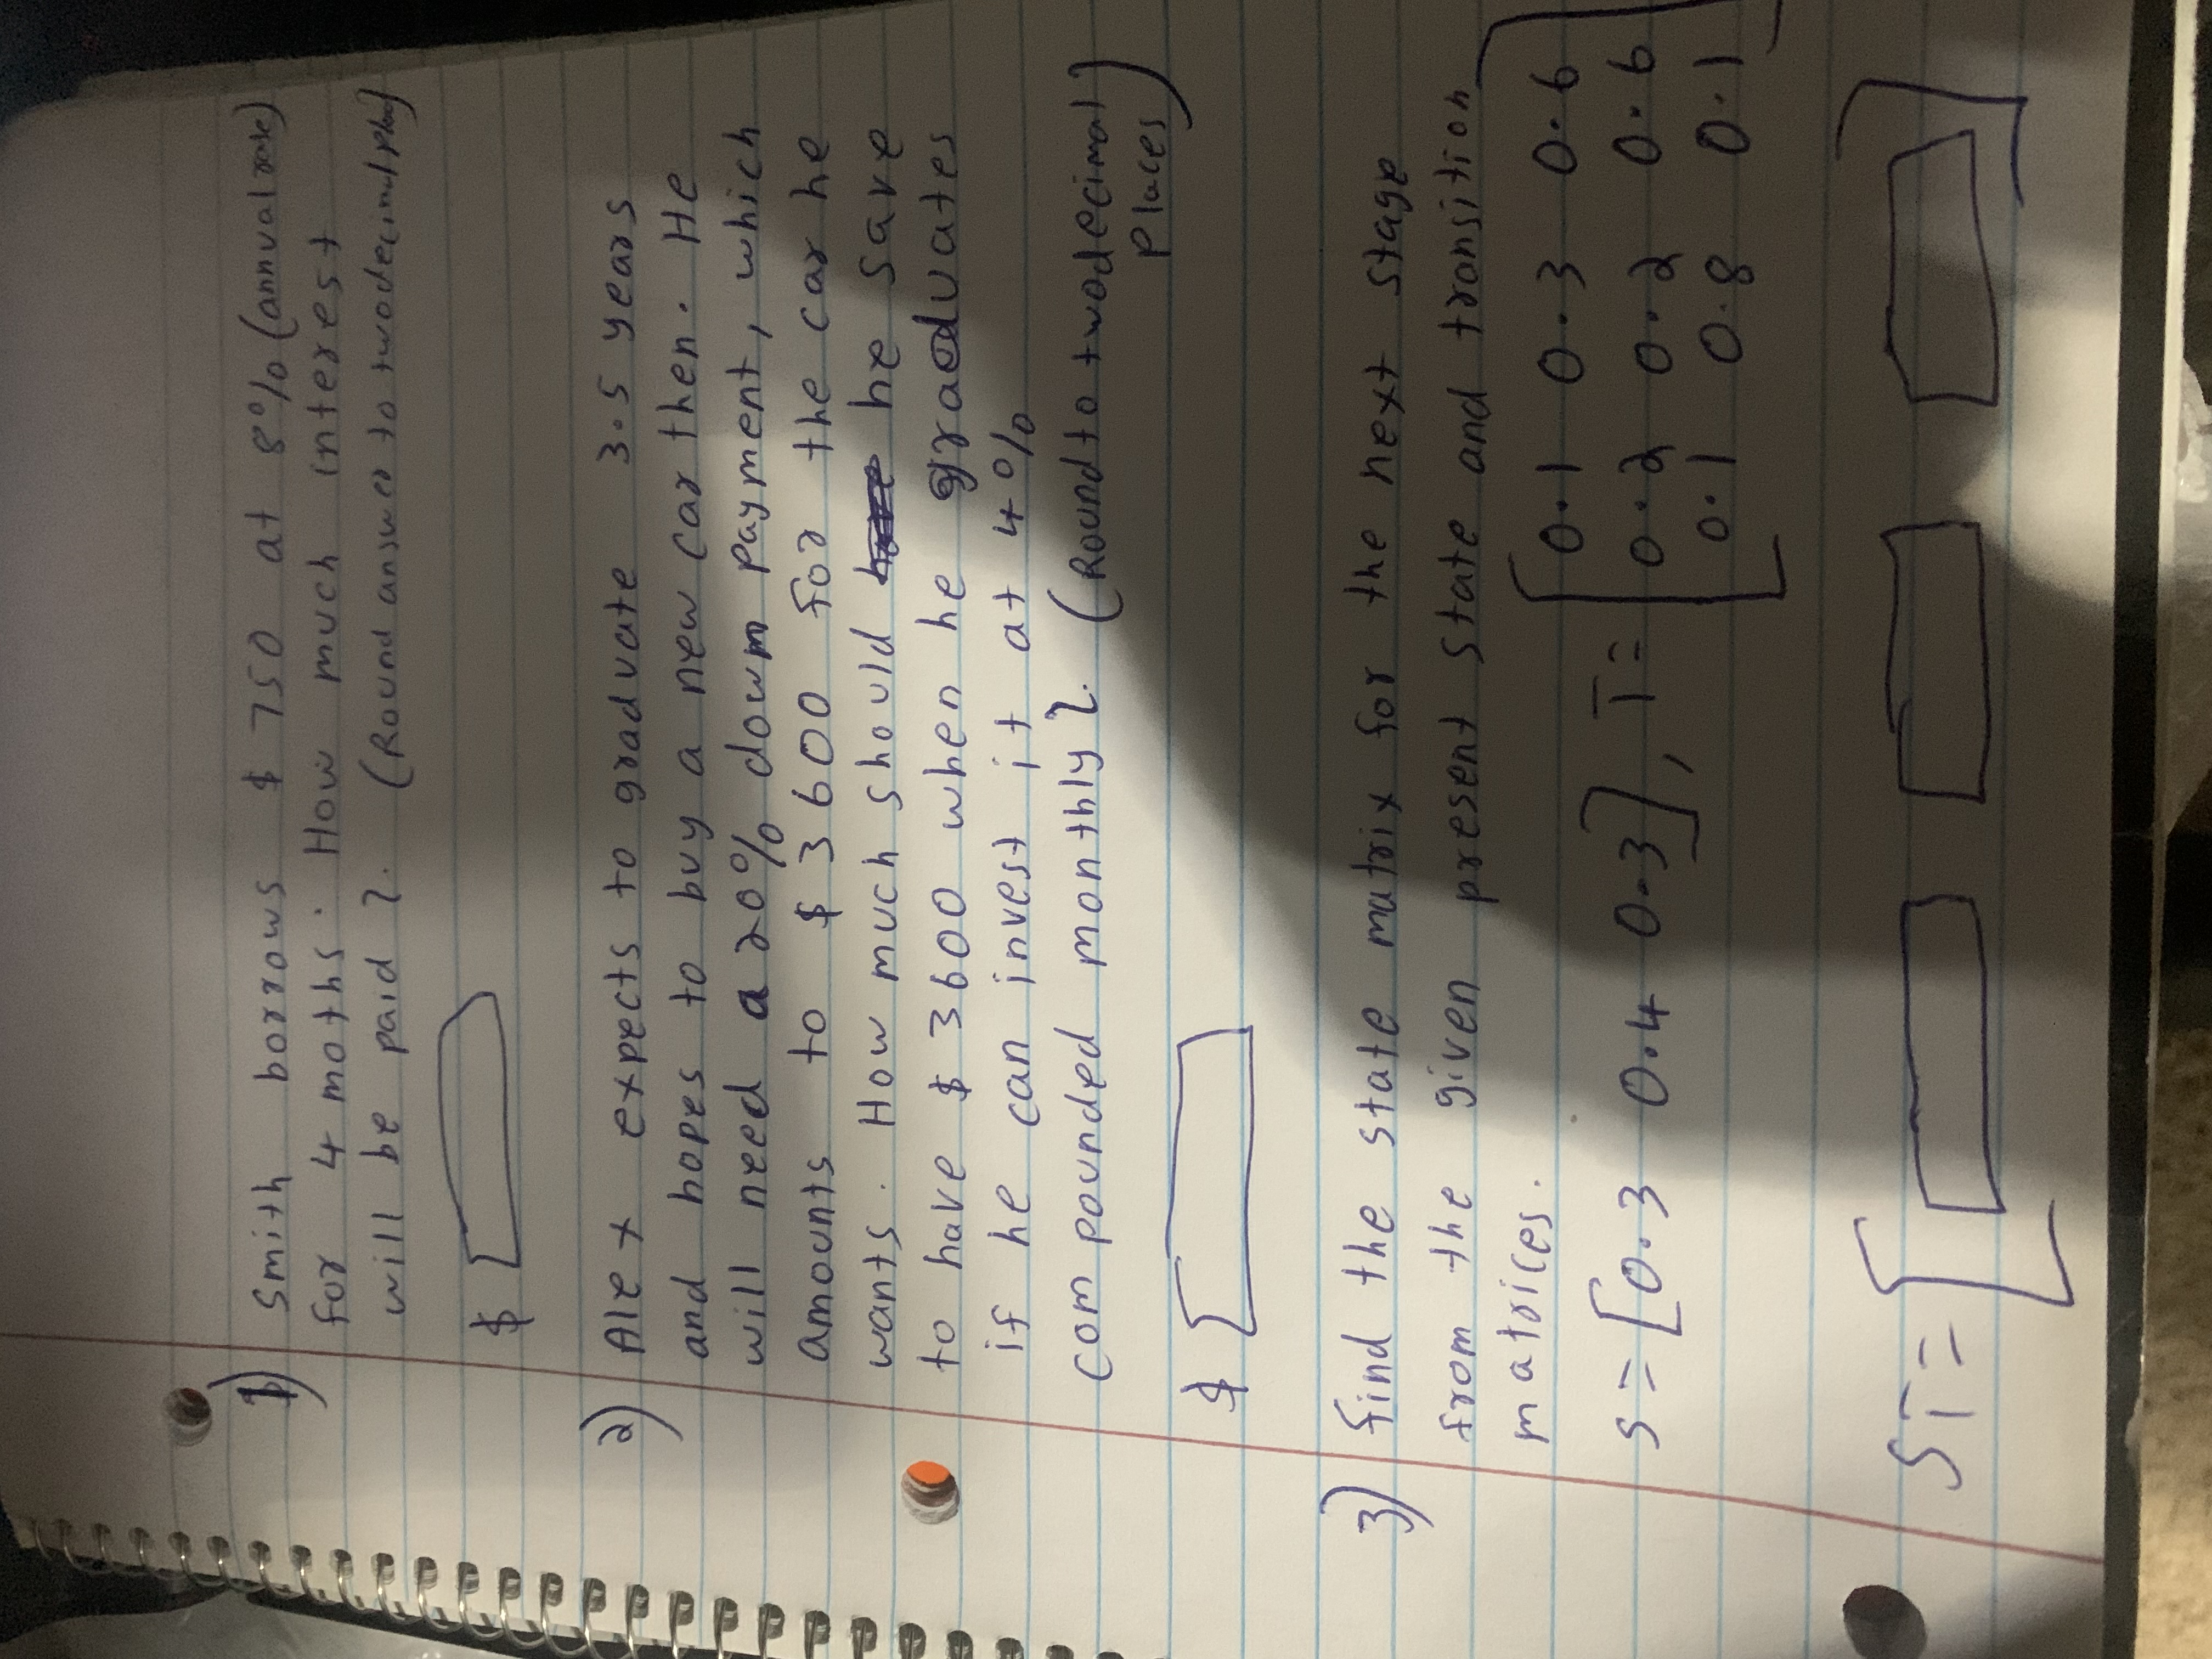 1) Smith borrows $ 750 at 8% (annual rate)
for 4 moths. How much interest
will be paid ?. (Round answer to two decimal places)
$
2) Alex expects to graduate 3.5 years
and hopes to buy a new car then. He
will need a 20% down payment, which
amounts to $ 3600 for the car he
wants. How much should he save
to have $ 3600 when he graduates
if he can invest it at 4%
compounded monthly ?. (Round to two decimal
places)
$
3) Find the state matrix for the next stage
from the given present state and transition
matrices.
0.1 0.3 0.6
S = [0.3 0.4 0.3], T = 0.2 0.2 0.6
0.1 0.8 0.1
ST =